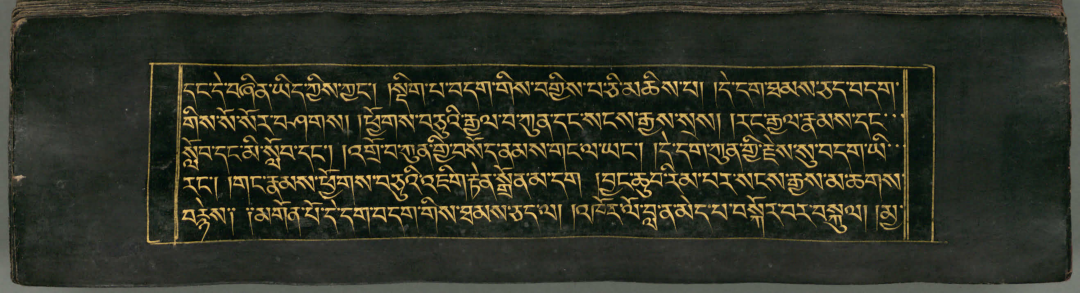 དང་དེ་བཞིན་ཡིད་ཀྱིས་ཀྱང་། །སྡིག་པ་བདག་གིས་བགྱིས་པ་ཅི་མཆིས་པ། །དེ་དག་ཐམས་ཅད་བདག་
གིས་སོ་སོར་བཤགས། །ཕྱོགས་བཅུའི་རྒྱལ་བ་ཀུན་དང་སངས་རྒྱས་སྲས། །རང་རྒྱལ་རྣམས་དང་་་
སློབ་དང་མི་སློབ་དང་། །འགྲོ་བ་ཀུན་གྱི་བསོད་ནམས་གང་ལ་ཡང་། །དེ་དག་ཀུན་གྱི་རྗེས་སུ་བདག་ཡི་་
རང་། །གང་རྣམས་ཕྱོགས་བཅུའི་འཇིག་རྟེན་སྒྲོན་མ་དག །བྱང་ཆུབ་རིམ་པར་སངས་རྒྱས་མ་ཆགས་
བརྙེས། །མགོན་པོ་དེ་དག་བདག་གིས་ཐམས་ཅད་ལ། །འཁོར་ལོ་བླ་ན་མེད་པ་བསྐོར་བར་བསྐུལ། །མྱ་